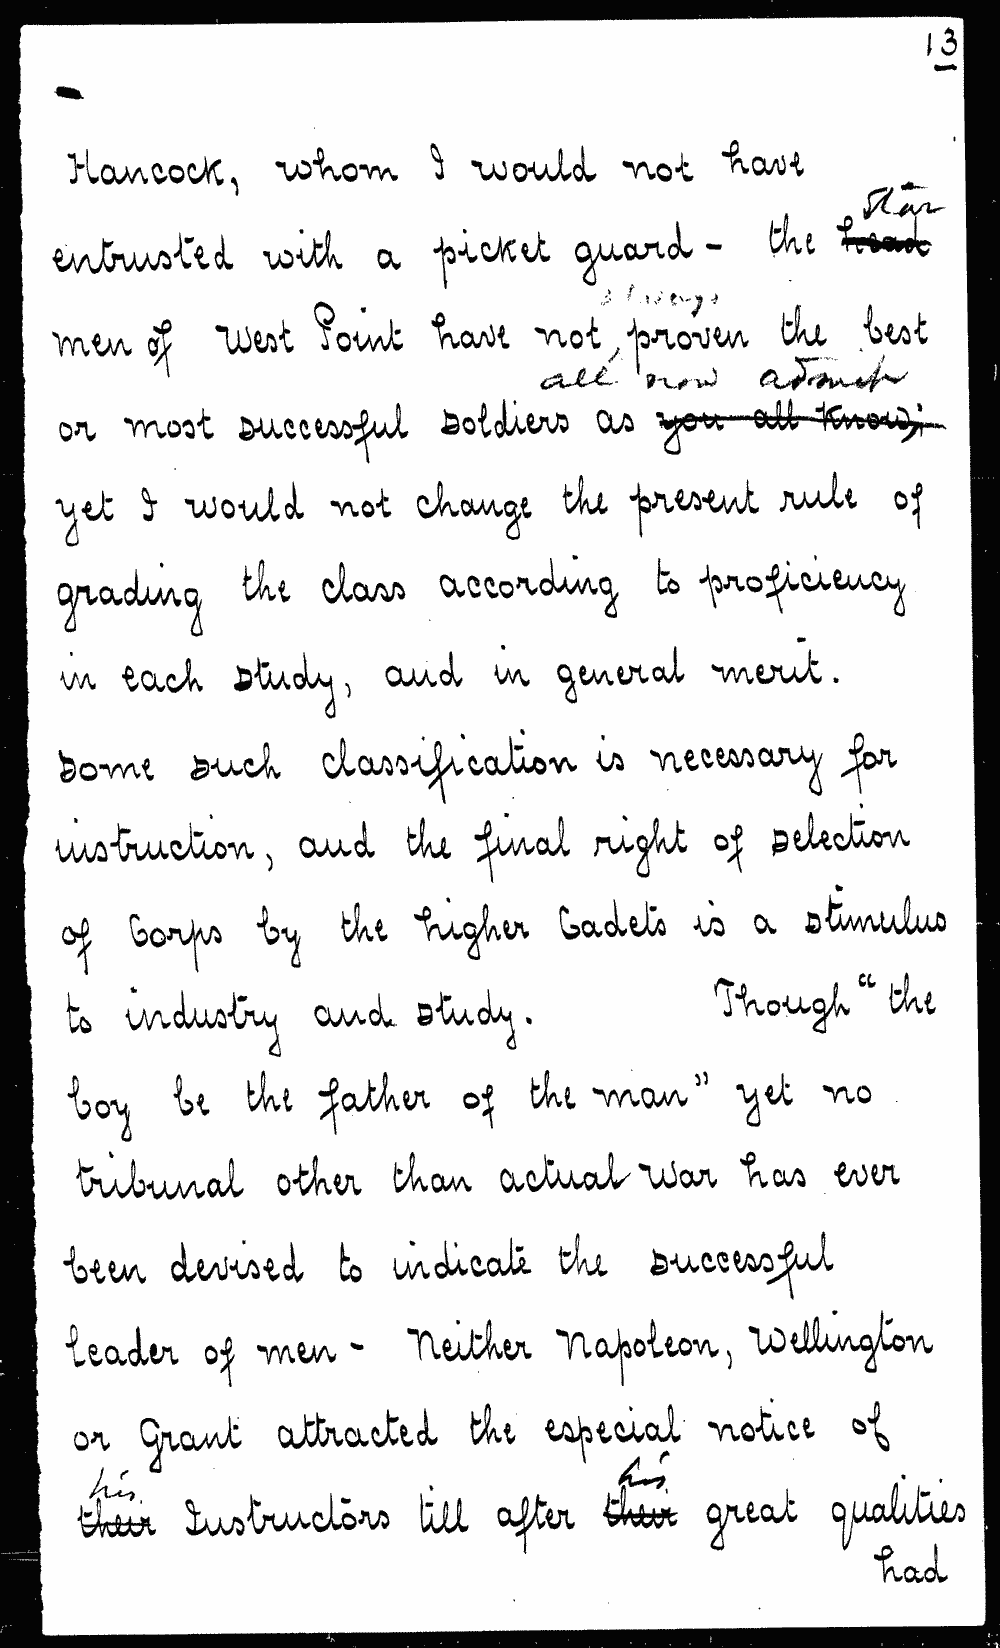 13
Hancock, whom I would not have
star
entrusted with a picket guard - the head
always
men of West Point have not proven the best
all now admit
or most successful soldiers as you all know;
yet I would not change the present rule of
grading the class according to proficiency
in each study, and in general merit.
Some such classification is necessary for
instruction, and the final right of selection
of Corps by the higher Cadets is a stimulus
to industry and study. Though "the
boy be the father of the man" yet no
tribunal other than actual war has ever
been devised to indicate the successful
leader of men - Neither Napoleon, Wellington
or Grant attracted the especial notice of
his his
their Instructors till after their great qualities
had